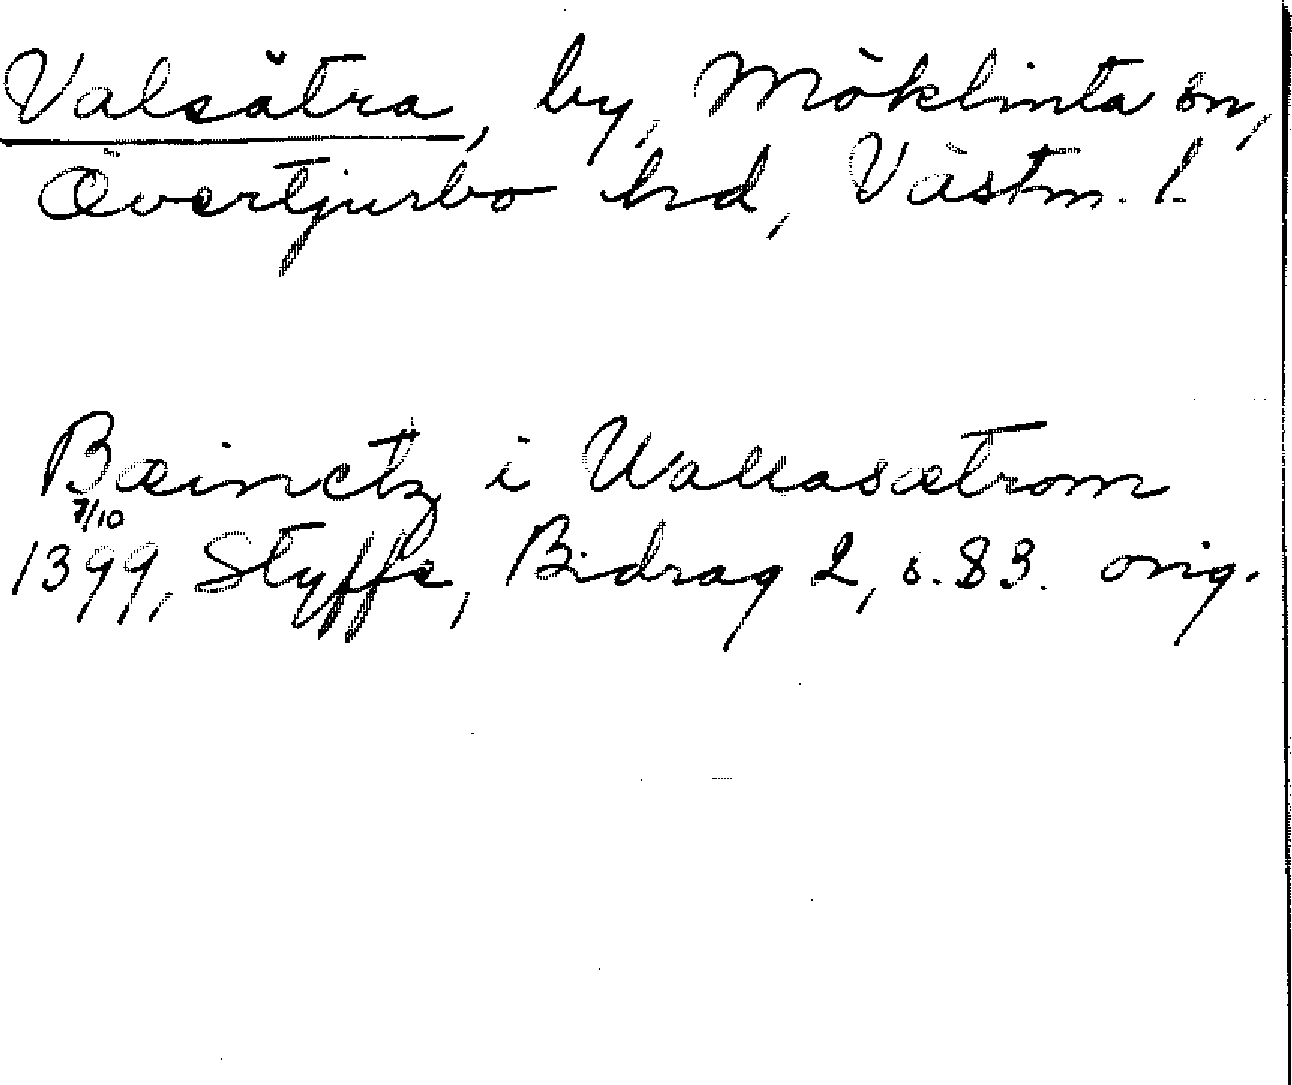 Valsätra, by, Möklinta sn,
Övertjurbo hrd, Västm. l.
Bæinctz i Wallasætrom
7/10
1399, Styffe, Bidrag 2, s. 83. orig.